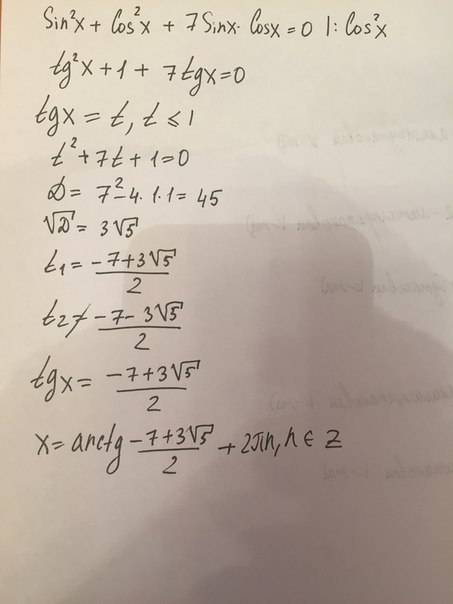 Sin²x + Cos²x + 7Sinx · Cosx = 0 |: Cos²x
tg²x + 1 + 7tgx = 0
tgx = t, t ≤ 1
t² + 7t + 1 = 0
D = 7² - 4 · 1 · 1 = 45
√D = 3√5
t₁ = (-7+3√5)/2
t₂ ≠ (-7-3√5)/2
tgx = (-7+3√5)/2
x = arctg (-7+3√5)/2 + 2πn, n ∈ Z